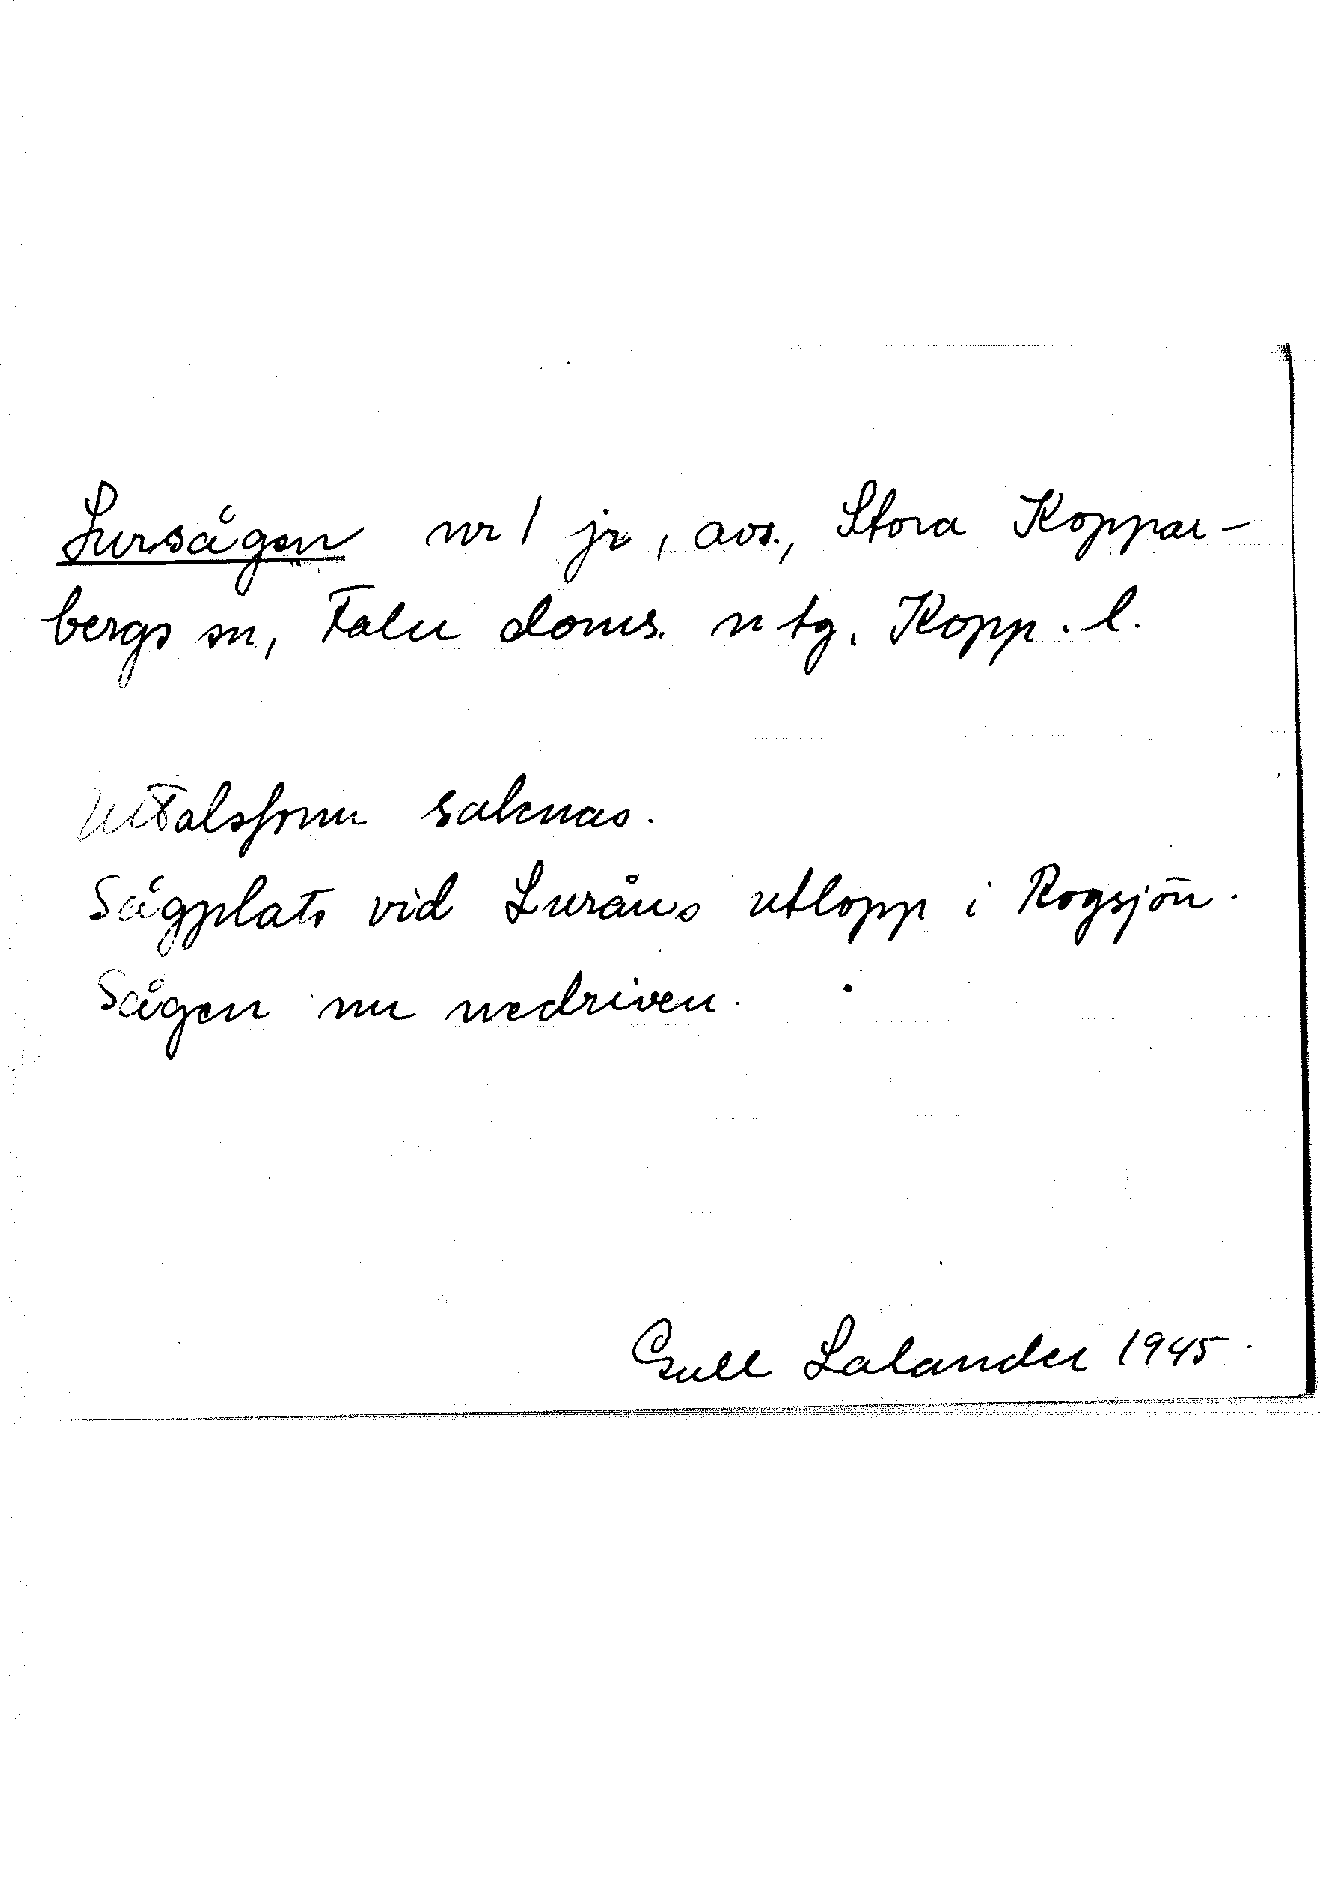 Lursågen nr 1 jr, avs., Stora Koppar-
bergs sn, Falu doms. n tg. Kopp. l.
Uttalsform saknas.
Sågplats vid Luråns utlopp i Rogsjön.
Sågen nu nedriven.
Gull Lalander 1945.